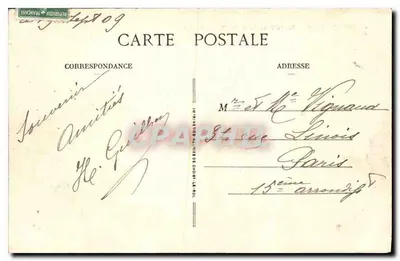 Sept 09
CARTE POSTALE
CORRESPONDANCE
ADRESSE
Souvenir
Amitiés
H.
Mr et Me Vignaud
rue Linois
Paris
15ème arrondist